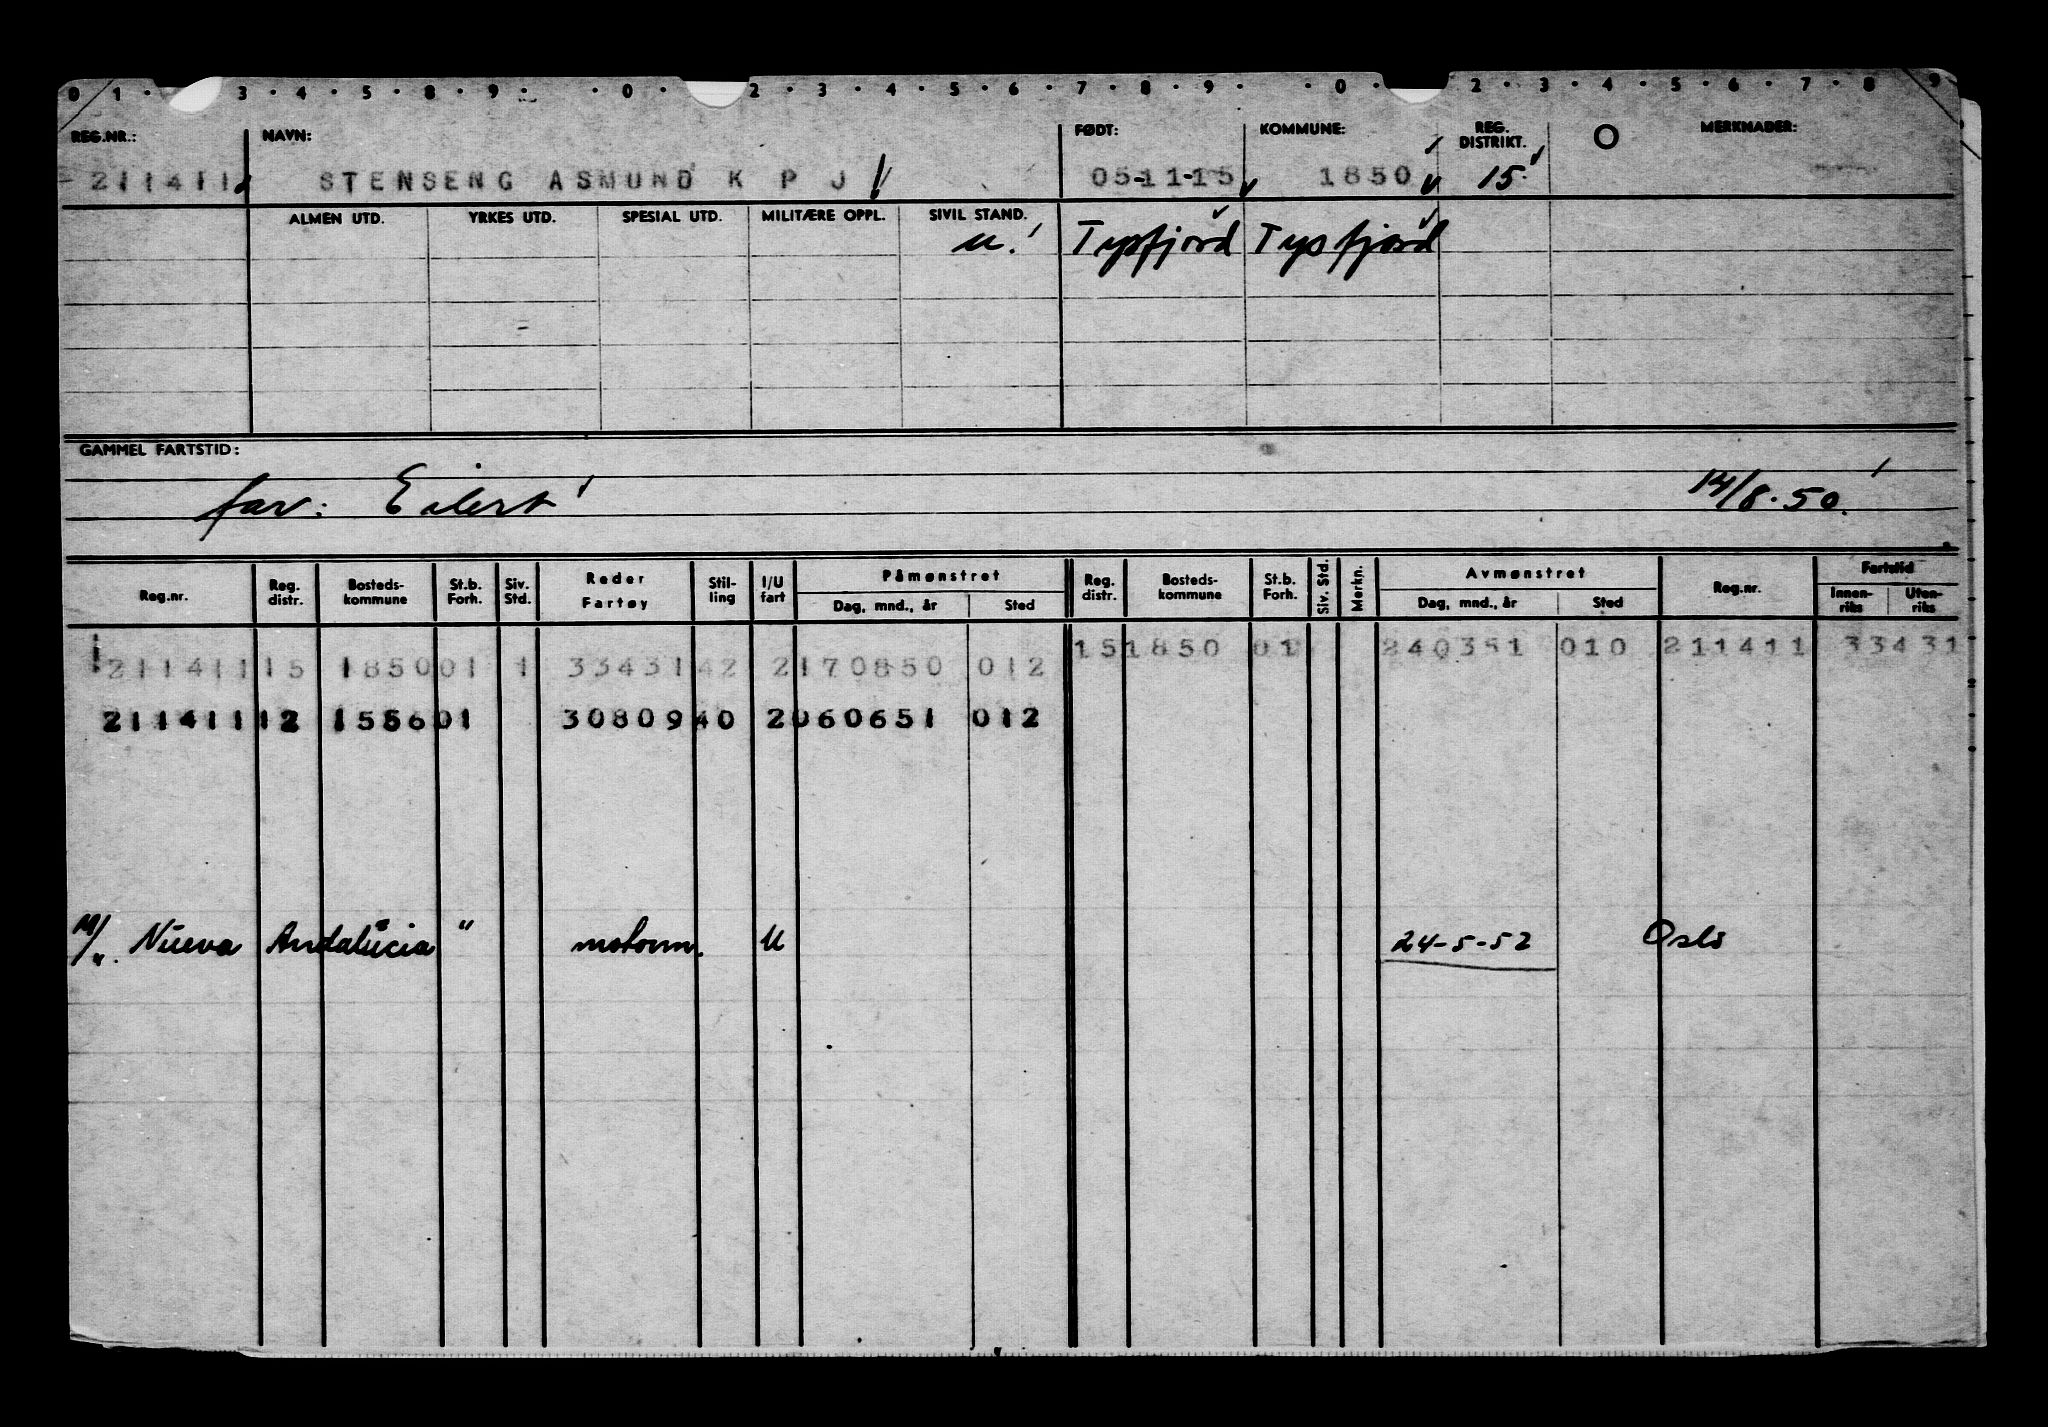 0 1 · 3 · 4 · 5 · 8 · 9 · · 0 · 2 · 3 · 4 · 5 · 6 · 7 · 8 · 9 · · 0 · 2 · 3 · 4 · 5 · 6 · 7 · 8 9
REG.NR.: NAVN: FØDT: KOMMUNE: REG. DISTRIKT. MERKNADER:
211411 STENSENG ASMUND K P J 05-11-15 1850 15
ALMEN UTD. YRKES UTD. SPESIAL UTD. MILITÆRE OPPL. SIVIL STAND.
u. Tysfjord Tysfjord
GAMMEL FARTSTID:
far: Eilert 14/8.50.
Reg.nr. Reg. distr. Bosteds-kommune St.b. Forh. Siv. Std. Reder Fartøy Stil-ling I/U fart Påmønstret Dag, mnd., år Sted Reg. distr. Bosteds-kommune St.b. Forh. Siv. Std. Merkn. Avmønstret Dag, mnd., år Sted Reg.nr. Fartstid Innen-riks Uten-riks
211411 15 1850 01 1 33431 42 2 170850 012 15 1850 01 240351 010 211411 33431
211411 12 1556 01 30809 40 2 060651 012
M/s. Nueva Andalucia " motorm. U 24-5-52 Oslo